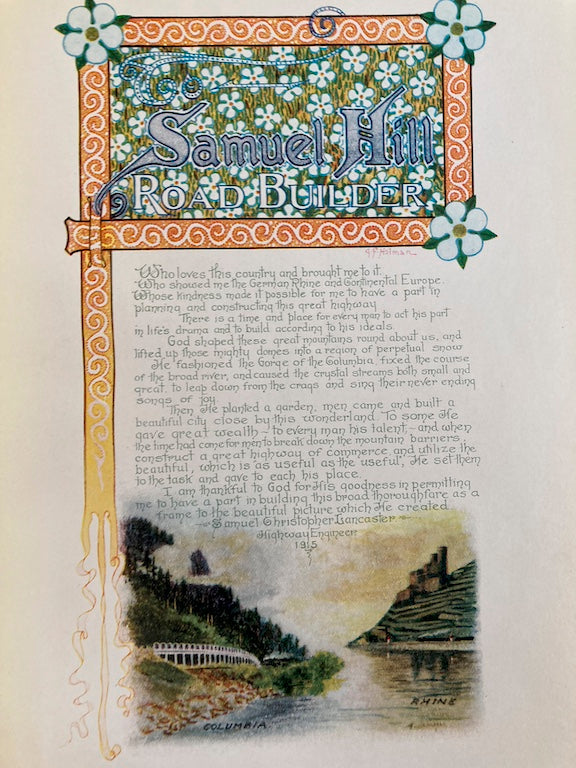 Samuel Hill
ROAD BUILDER
Who loves this country and brought me to it.
Who showed me the German Rhine and Continental Europe.
Whose kindness made it possible for me to have a part in
planning and constructing this great highway
There is a time and place for every man to act his part
in life's drama and to build according to his ideals.
God shaped these great mountains round about us, and
lifted up those mighty domes into a region of perpetual snow
He fashioned the Gorge of the Columbia, fixed the course
of the broad river, and caused the crystal streams both small and
great, to leap down from the crags and sing their never ending
songs of joy.
Then He planted a garden, men came and built a
beautiful city close by this wonderland. To some He
gave great wealth - to every man his talent - and when
the time had come for men to break down the mountain barriers,
construct a great highway of commerce and utilize the
beautiful, which is as useful as the useful, He set them
to the task and gave to each his place.
I am thankful to God for His goodness in permitting
me to have a part in building this broad thoroughfare as a
frame to the beautiful picture which He created.
- Samuel Christopher Lancaster -
Highway Engineer
1915
COLUMBIA
RHINE